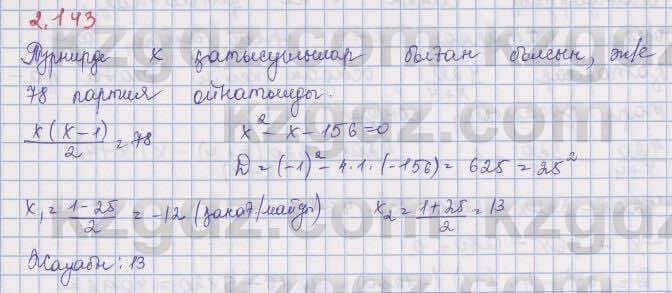 2.143
Турнирде x қатысушылар болған болсын, ж/е
78 партия ойнатылды.
x(x-1)/2 = 78    x² - x - 156 = 0
D = (-1)² - 4·1·(-156) = 625 = 25²
x₁ = (1-25)/2 = -12 (қанағ/майды)    x₂ = (1+25)/2 = 13
Жауабы: 13
kzgdz.com